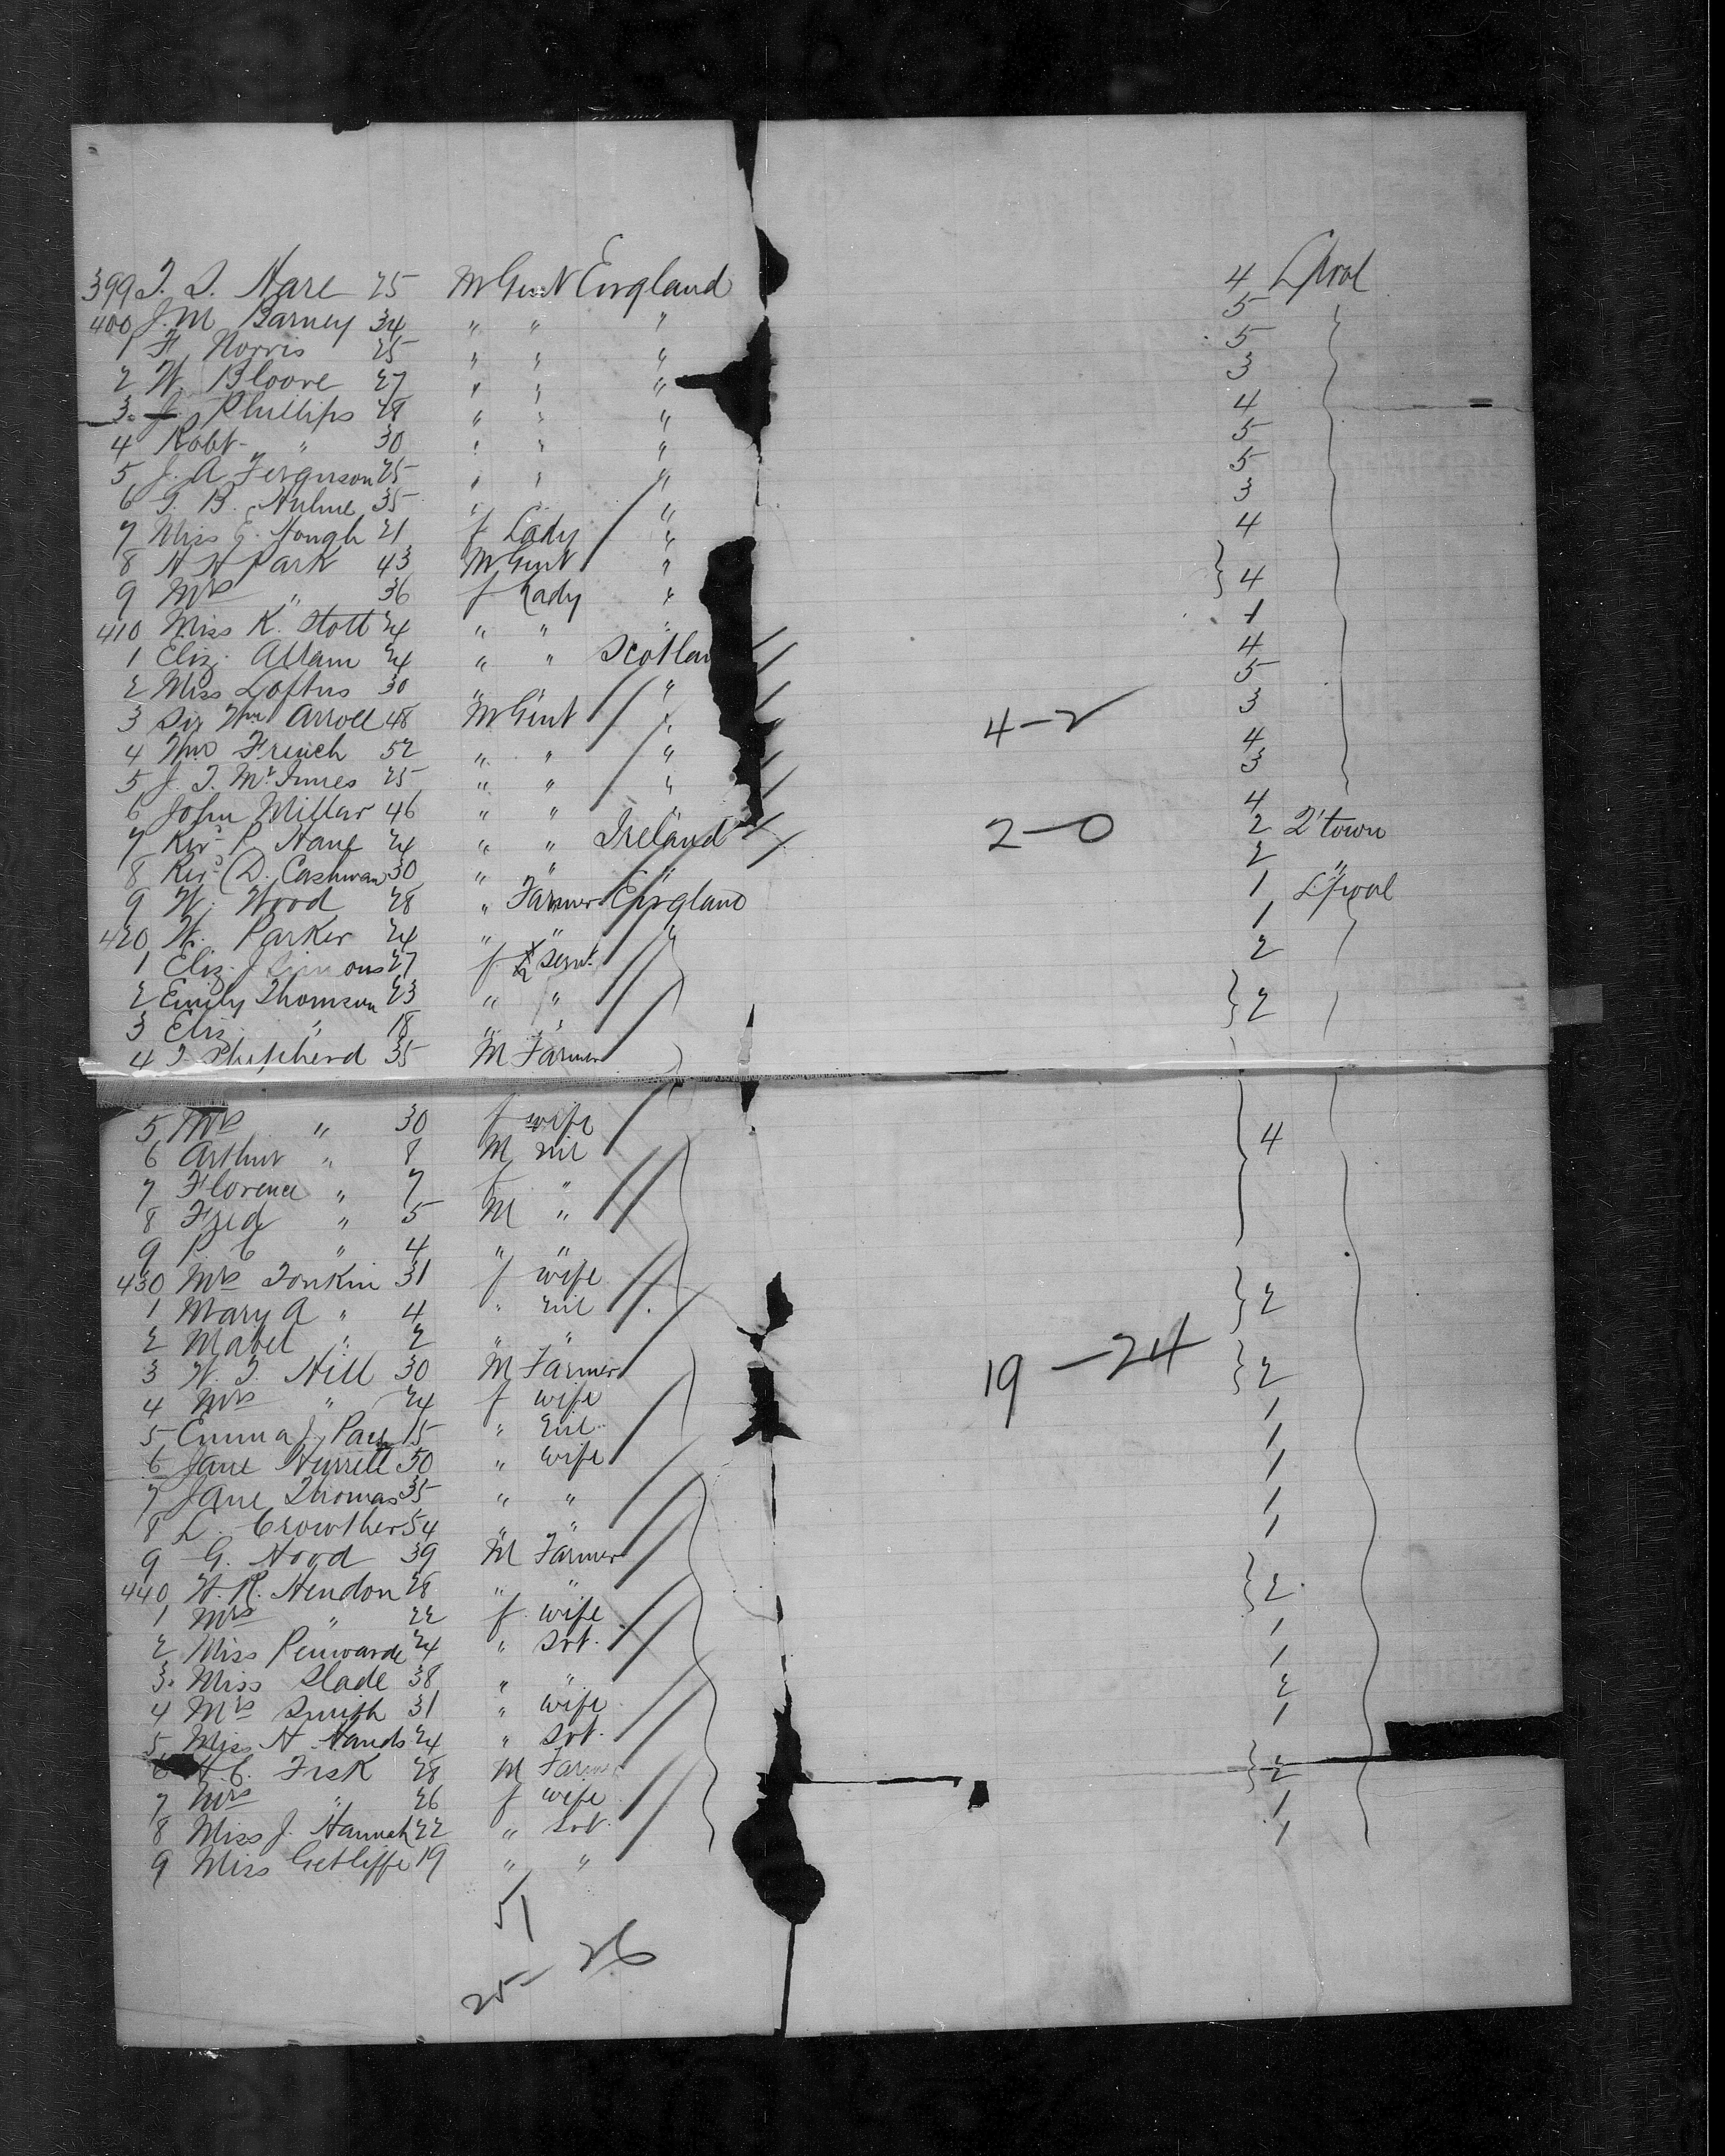 399 T. T. Hare 25 M Gent England 4 L'pool
400 J. M Barney 34 " " " 5
1 H. Norris 25 " " " 5
2 W. Bloore 27 " " " 3
3. J. Phillips 28 " " " 4
4 Robt " 30 " " " 5
5 J. A Ferguson 25 " " " 5
6 G. B. Hulme 35 " " " 3
7 Miss E. Hough 21 f Lady " 4
8 H H Park 43 M Gent " } 4
9 Mrs " 36 f Lady "
410 Miss K. Stott 24 " " " 1
1 Eliz. Allam 24 " " Scotlan 4
2 Miss Loftus 30 " " " 5
3 Sir Wm Arroll 48 M Gent " 3
4 Thos French 52 " " " 4
4-2
5 J. T. McInnes 25 " " " 3
6 John Millar 46 " " " 4
7 Revd P. Hane 24 " " Ireland 2-0 2 Q'town
8 Revd D. Cashman 30 " " " 2 "
9 W. Wood 28 " Farmer England 1 L'pool
420 W. Parker 24 " " " 1
1 Eliz. J Simons 27 f Servt 2
2 Emily Thomson 23 " " } 2
3 Eliz " 18 " "
4 T. Shepherd 35 M Farmer
5 Mrs " 30 f wife
6 Arthur " 8 M nil } 4
7 Florence " 7 f "
8 Fred " 5 M "
9 P. C " 4 " "
430 Mrs Tonkin 31 f wife
1 Mary A " 4 " nil } 2
2 Mabel " 2 " "
3 W. J. Hill 30 M Farmer } 2
19-24
4 Mrs " 24 f wife
5 Emma J. 15 " nil 1
6 Jane Hurrell 50 " wife 1
7 Jane Thomas 35 " " 1
8 L. Crowther 54 " " 1
9 G. Hood 39 M Farmer 1
440 W. R. Hendon 28 " " } 2
1 Mrs " 22 f wife
2 Miss Penwarde 24 " Svt. 1
3. Miss Slade 38 " " 1
4 Mrs Smith 31 " wife 2
5 Miss H Hands 24 " Svt. 1
6 H. C. Fisk 28 M Farmer } 2
7 Mrs " 26 f wife
8 Miss J. Hannah 22 " Svt. 1
9 Miss Getliffe 19 " " 1
51
25-26